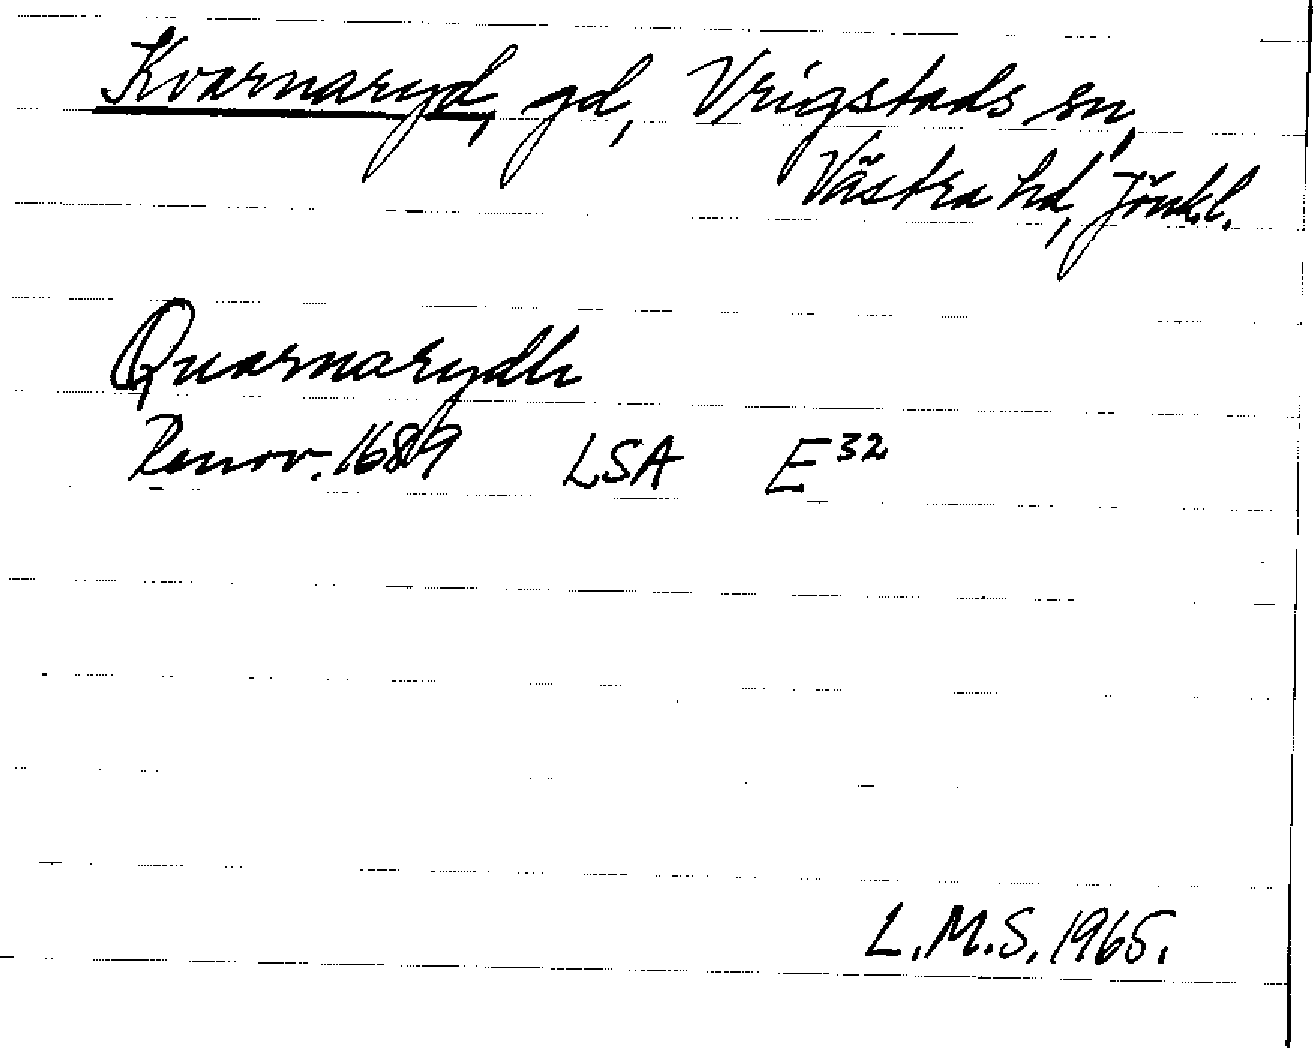 Kvarnaryd, gd, Vrigstads sn,
Västra hd, Jönk.l.
Quarnarydh
Renov. 1689 LSA E32
L.M.S. 1965.